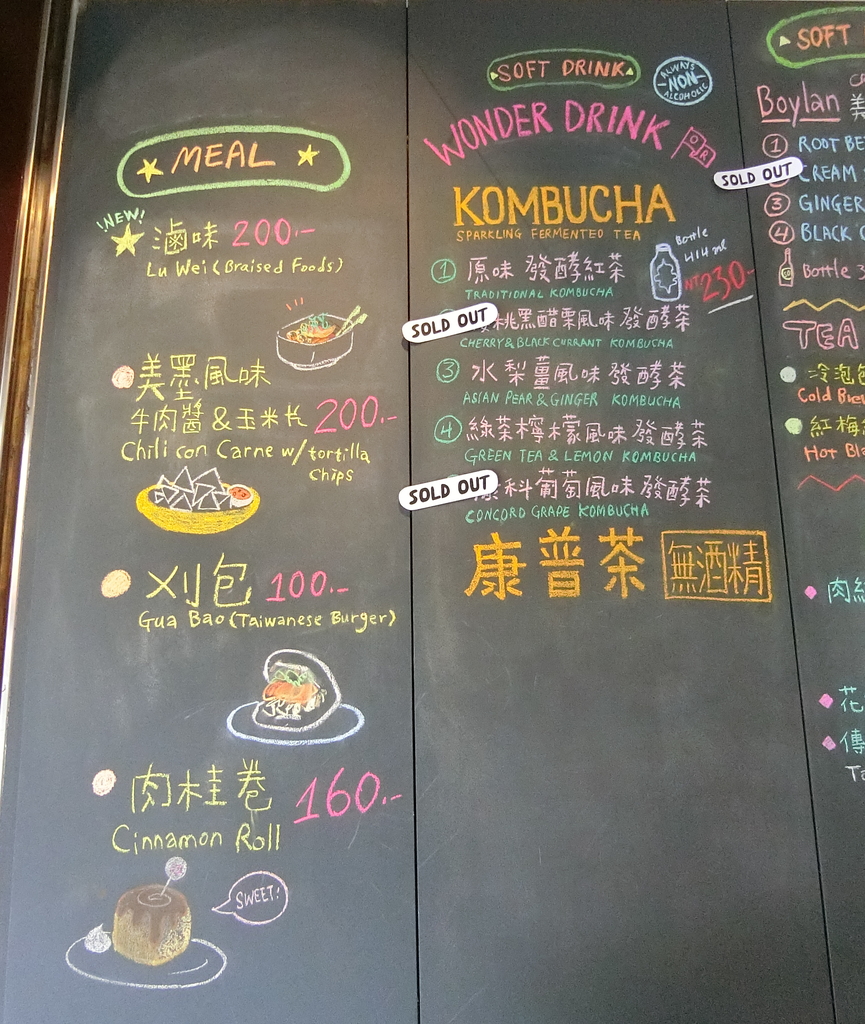 MEAL
NEW!
滷味 200.-
Lu Wei (Braised Foods)
美墨風味
牛肉醬 & 玉米片 200.-
Chili con Carne w/ tortilla
Chips
刈包 100.-
Gua Bao (Taiwanese Burger)
肉桂卷 160.-
Cinnamon Roll
SWEET!
SOFT DRINK
ALWAYS
NON
ALCOHOLIC
WONDER DRINK
OR
KOMBUCHA
SPARKLING FERMENTED TEA
Bottle
414 ml
NT 230-
1 原味 發酵紅茶
TRADITIONAL KOMBUCHA
SOLD OUT
桃黑醋栗風味 發酵茶
CHERRY & BLACK CURRANT KOMBUCHA
3 水梨薑風味 發酵茶
ASIAN PEAR & GINGER KOMBUCHA
4 綠茶檸檬風味 發酵茶
GREEN TEA & LEMON KOMBUCHA
SOLD OUT
科葡萄風味 發酵茶
CONCORD GRAPE KOMBUCHA
康普茶 無酒精
SOFT
Boylan
美
1 ROOT BE
SOLD OUT
CREAM
3 GINGER
4 BLACK C
Bottle
TEA
冷泡
Cold Bre
紅梅
Hot Bla
肉
花
傳
Ta